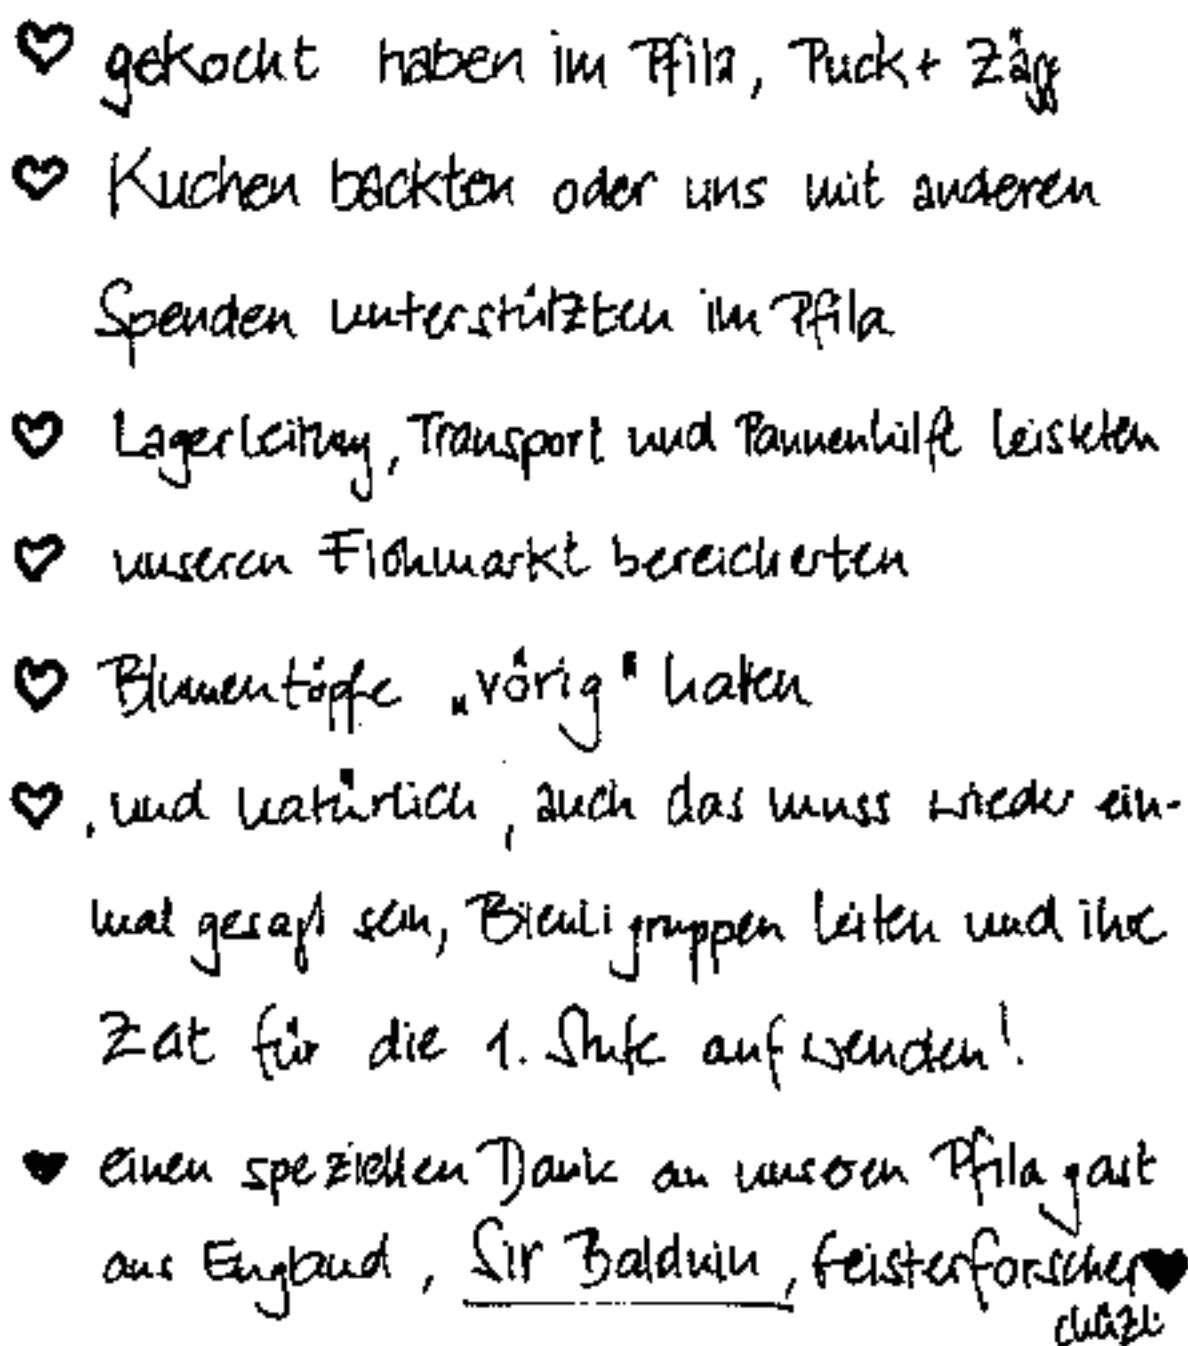 ♡ gekocht haben im Pfila, Puck + Zägg
♡ Kuchen backten oder uns mit anderen
Spenden unterstützten im Pfila
♡ Lagerleitung, Transport und Pannenhilfe leisteten
♡ unseren Flohmarkt bereicherten
♡ Blumentöpfe „vörig" hatten
♡, und natürlich, auch das muss wieder ein-
mal gesagt sein, Bienligruppen leiten und ihre
Zeit für die 1. Stufe aufwenden!
♥ einen speziellen Dank an unseren Pfilagast
aus England, Sir Balduin, Geisterforscher ♥